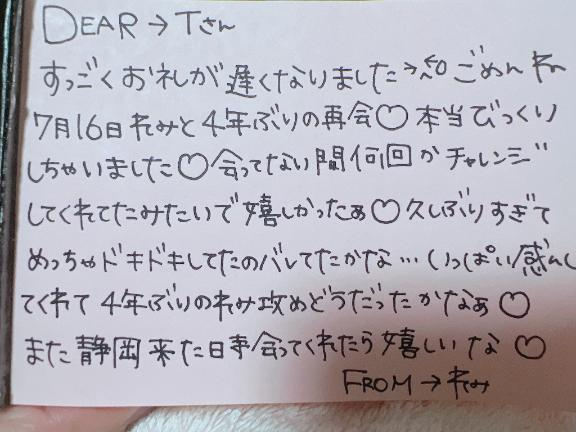 DEAR→Tさん
すっごくお礼が遅くなりました ごめんね
7月16日れみと4年ぶりの再会♡本当びっくり
しちゃいました♡会ってない間何回かチャレンジ
してくれてたみたいで嬉しかったぁ♡久しぶりすぎて
めっちゃドキドキしてたのバレてたかな…いっぱい感んじ
てくれて4年ぶりのれみ攻めどうだったかなぁ♡
また静岡来た日事会ってくれたら嬉しいな♡
FROM→れみ